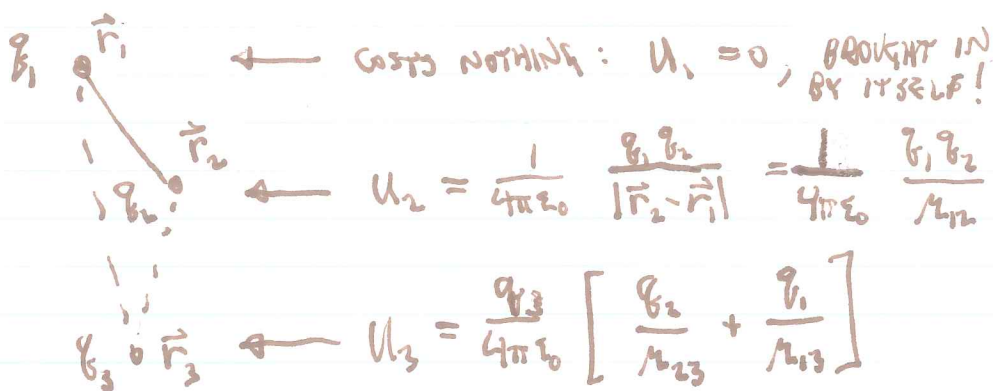 q₁ r⃗₁ ← COSTS NOTHING: U₁ = 0, BROUGHT IN BY ITSELF!
q₂ r⃗₂ ← U₂ = 1/(4πε₀) q₁q₂/|r⃗₂-r⃗₁| = 1/(4πε₀) q₁q₂/r₁₂
q₃ r⃗₃ ← U₃ = q₃/(4πε₀) [ q₂/r₂₃ + q₁/r₁₃ ]